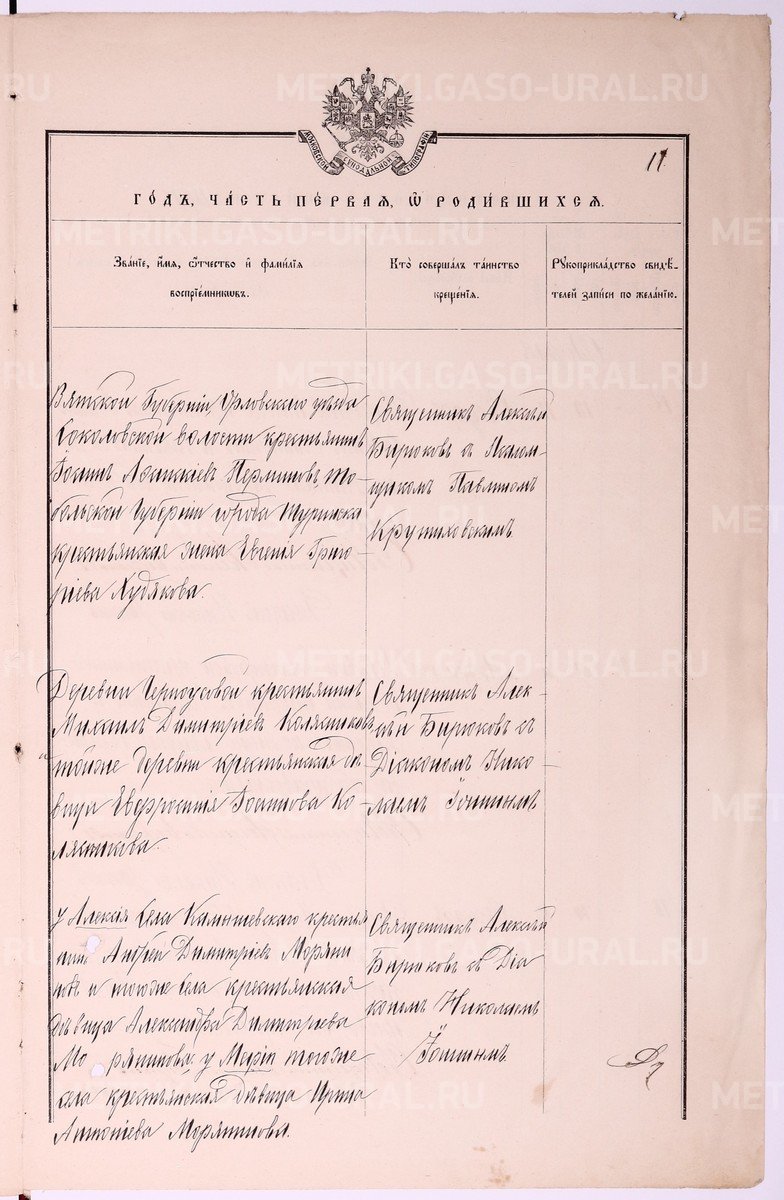 METRIKI.GASO-URAL.RU
МОСКОВСКОЙ СѴНОДАЛЬНОЙ ТИПОГРАФІИ
11.
ГОДЪ, ЧАСТЬ ПЕРВАЯ, Ѽ РОДИВШИХСЯ.
Званіе, имя, ѿчество и фамилія
воспріемникѡвъ.
Кто совершалъ таинство
крещенія.
Рꙋкоприкладство свидѣ-
телей записи по желанію.
Вятской Губерніи, Орловскаго уѣзда
Соколовской волости крестьянинъ
Іоаннъ Перминовъ, То-
больской Губерніи города Туринска
крестьянская жена Евгенія Григо-
ріева Худякова.
Священникъ Алексѣй
Бирюковъ съ Псалом-
щикомъ Павлиномъ
Крутиховскимъ
Деревни Черноусовой крестьянинъ
Михаилъ Димитріевъ Колясниковъ
тойже деревни крестьянская дѣ-
вица Евфросинія Іоаннова Ко-
лясникова.
Священникъ Алек-
сѣй Бирюковъ съ
Діакономъ Нико-
лаемъ
у Алексія села Камышевскаго крестья
нинъ Андрей Димитріевъ Моряни
новъ и тогоже села крестьянская
дѣвица Александра Димитріева
Морянинова; у Маріи тогоже
села крестьянская дѣвица Ирина
Антоніева Морянинова.
Священникъ Алексѣй
Бирюковъ съ Діа
кономъ Николаемъ